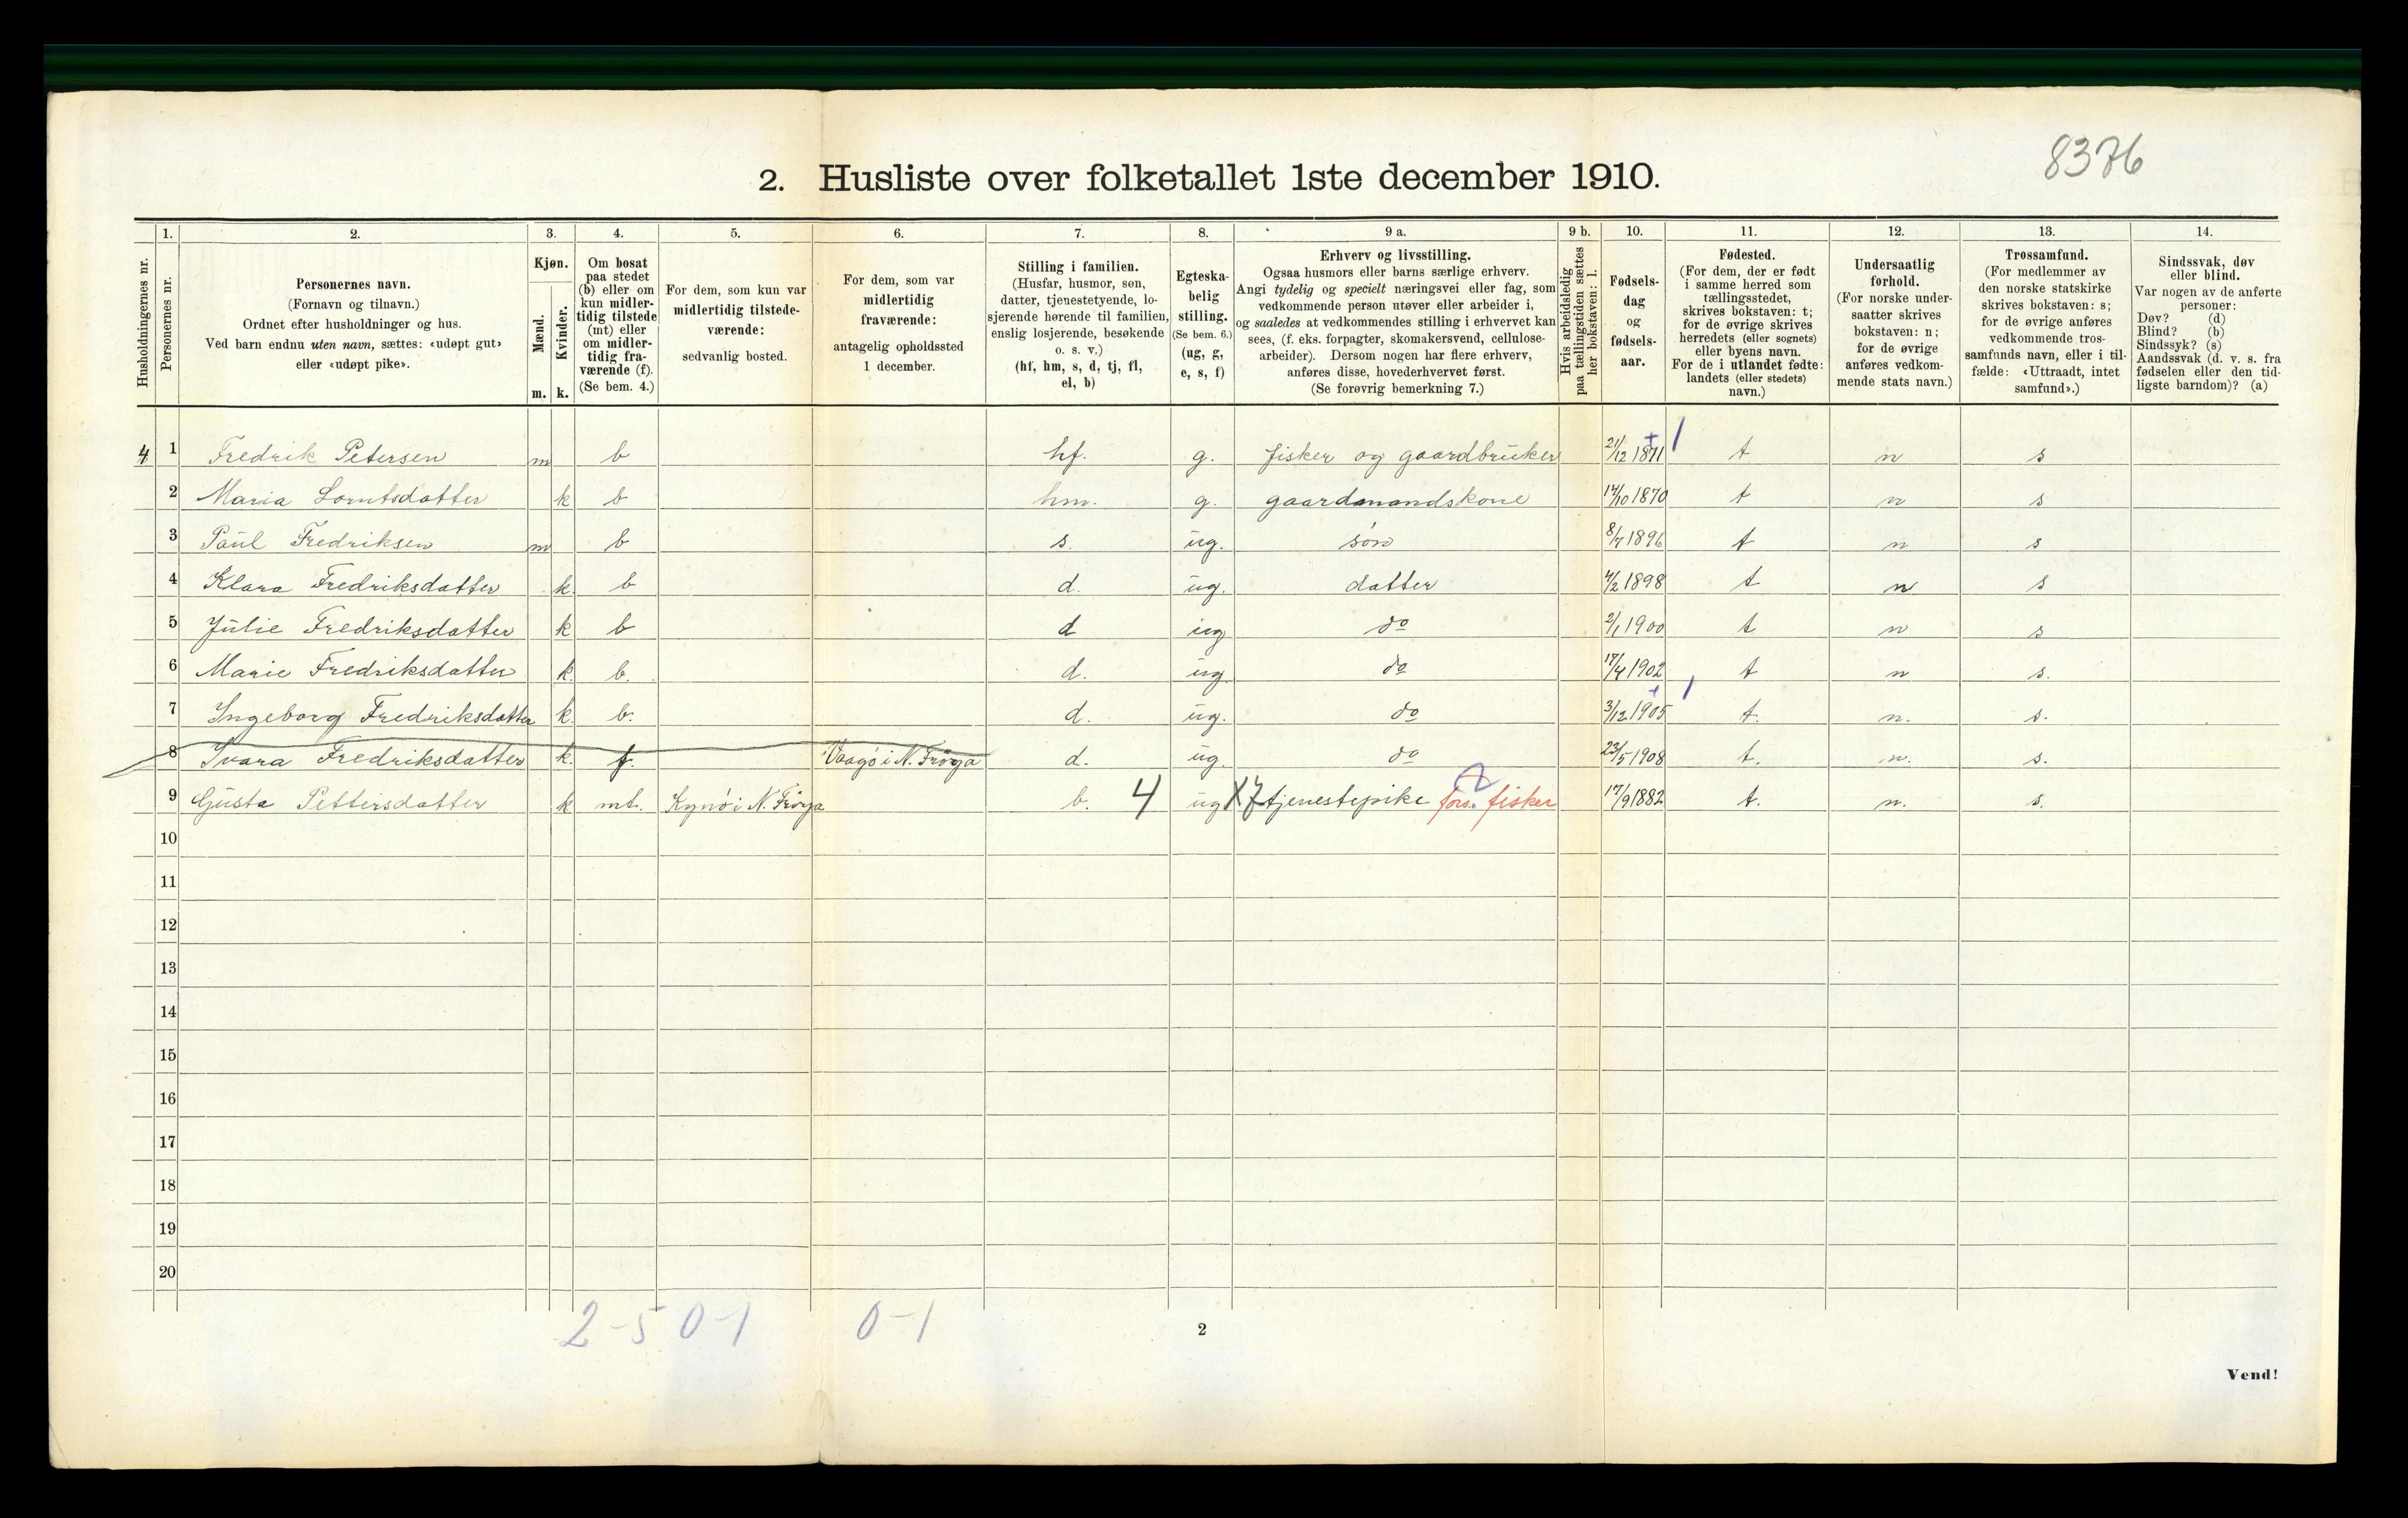 8376
2. Husliste over folketallet 1ste december 1910.
1. 2. 3. 4. 5. 6. 7. 8. 9 a. 9 b. 10. 11. 12. 13. 14.
Husholdningernes nr.
Personernes nr.
Personernes navn.
(Fornavn og tilnavn.)
Ordnet efter husholdninger og hus.
Ved barn endnu uten navn, sættes: «udøpt gut»
eller «udøpt pike».
Kjøn.
Mænd.
Kvinder.
m. k.
Om bosat
paa stedet
(b) eller om
kun midler-
tidig tilstede
(mt) eller
om midler-
tidig fra-
værende (f).
(Se bem. 4.)
For dem, som kun var
midlertidig tilstede-
værende:
sedvanlig bosted.
For dem, som var
midlertidig
fraværende:
antagelig opholdssted
1 december.
Stilling i familien.
(Husfar, husmor, søn,
datter, tjenestetyende, lo-
sjerende hørende til familien,
enslig losjerende, besøkende
o. s. v.)
(hf, hm, s, d, tj, fl,
el, b)
Egteska-
belig
stilling.
(Se bem. 6.)
(ug, g,
e, s, f)
Erhverv og livsstilling.
Ogsaa husmors eller barns særlige erhverv.
Angi tydelig og specielt næringsvei eller fag, som
vedkommende person utøver eller arbeider i,
og saaledes at vedkommendes stilling i erhvervet kan
sees, (f. eks. forpagter, skomakersvend, cellulose-
arbeider). Dersom nogen har flere erhverv,
anføres disse, hovederhvervet først.
(Se forøvrig bemerkning 7.)
Hvis arbeidsledig
paa tællingstiden sættes
her bokstaven: l.
Fødsels-
dag
og
fødsels-
aar.
Fødested.
(For dem, der er født
i samme herred som
tællingsstedet,
skrives bokstaven: t;
for de øvrige skrives
herredets (eller sognets)
eller byens navn.
For de i utlandet fødte:
landets (eller stedets)
navn.)
Undersaatlig
forhold.
(For norske under-
saatter skrives
bokstaven: n;
for de øvrige
anføres vedkom-
mende stats navn.)
Trossamfund.
(For medlemmer av
den norske statskirke
skrives bokstaven: s;
for de øvrige anføres
vedkommende tros-
samfunds navn, eller i til-
fælde: «Uttraadt, intet
samfund».)
Sindssvak, døv
eller blind.
Var nogen av de anførte
personer:
Døv? (d)
Blind? (b)
Sindssyk? (s)
Aandssvak (d. v. s. fra
fødselen eller den tid-
ligste barndom)? (a)
4 1 Fredrik Petersen m b hf. g. fisker og gaardbruker 21/12 1871 t n s
2 Maria Lorntsdatter k b hm. g. gaardmandskone 14/10 1870 t n s
3 Paul Fredriksen m b s. ug. søn 8/7 1896 t n s
4 Klara Fredriksdatter k. b d. ug. datter 4/2 1898 t n s
5 Julie Fredriksdatter k b d ug do 2/1 1900 t n s
6 Marie Fredriksdatter k. b. d. ug do 17/4 1902 t n s.
7 Ingeborg Fredriksdatter k. b. d. ug. do 3/12 1905 t. n. s.
8 Svara Fredriksdatter k. f. Vaagö i N. Fröya d. ug. do 23/5 1908 t. n. s.
9 Gusta Pettersdatter k mt. Kynö i N. Fröya b. 4 ug X7 tjenestepike fors. fisker 17/9 1882 t. n. s.
10
11
12
13
14
15
16
17
18
19
20
2-5 0-1 0-1
2
Vend!